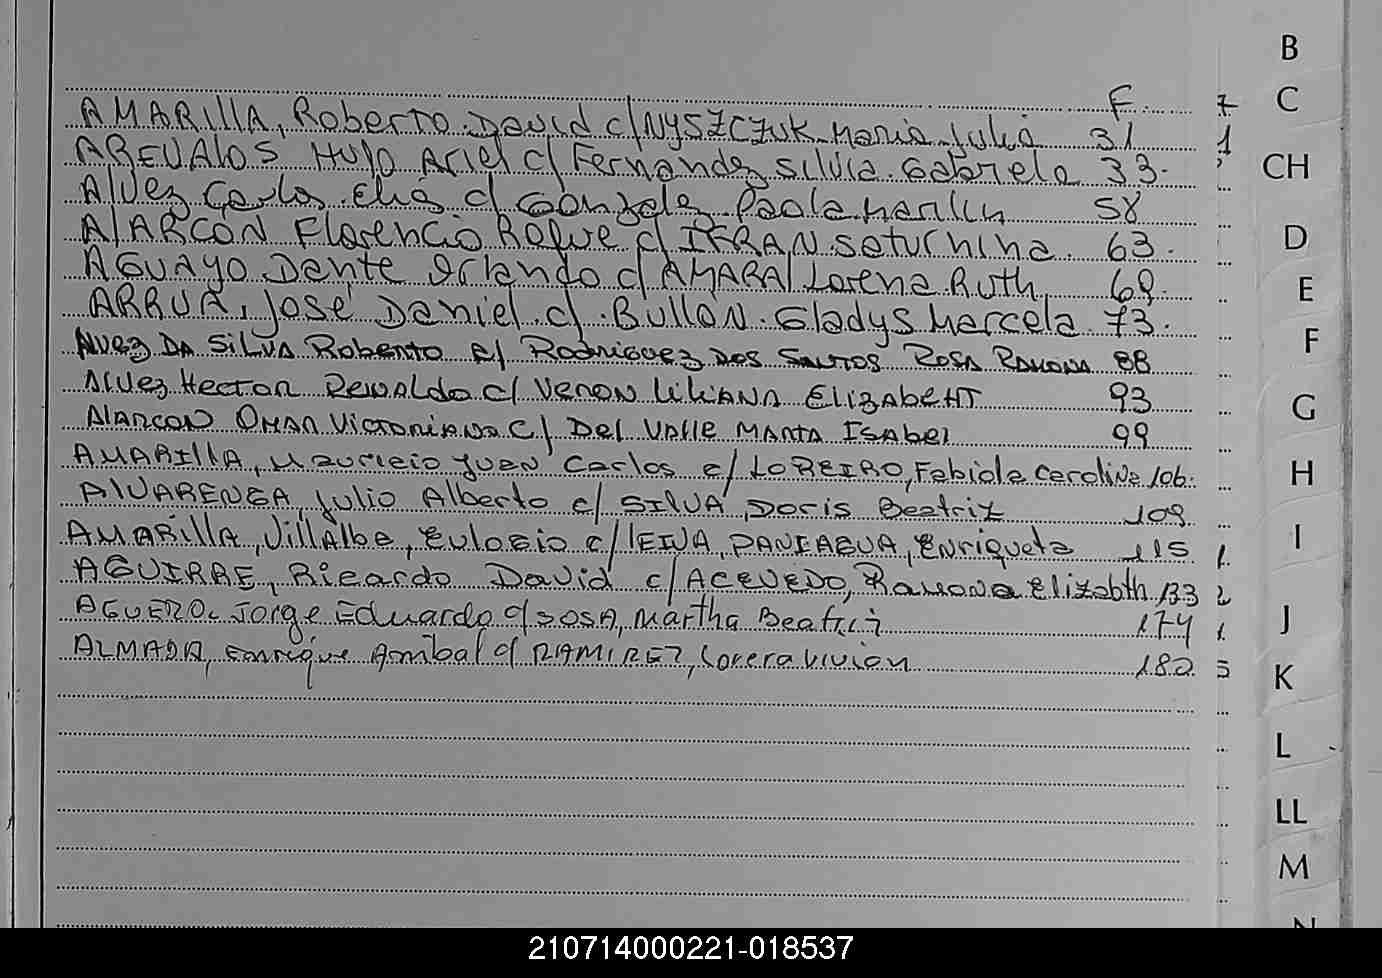 F.
AMARILLA, Roberto David c/ NYSZCZUK Maria Julia 31
AREVALOS HUJO Ariel c/ Fernandez Silvia Gabriela 33.
Alvez Carlos Elias c/ Gonzalez Paola Marilin 58
AlARCON Florencio Roque c/ IFRAN Saturnina 63.
AGUAYO Dante Orlando c/ AMARAl Lorena Ruth 69.
ARRUA, José Daniel c/ BULLON Gladys Marcela 73.
Alvez DA SilvA Roberto c/ Rodriguez Dos Santos Rosa Ramona 88
Alvez Hector Renaldo c/ Veron LiliANA ElizAbeHT 93
Alarcon Omar Victoriano c/ Del Valle Marta Isabel 99
AMARIllA, Mauricio Juan Carlos c/ LOREIRO, Fabiola Carolina 106.
AlVARENGA, Julio Alberto c/ SILVA, Doris Beatriz 109
AMARIllA, Villalba, Eulogio c/ LEIVA, PANIAGUA, Enriqueta 115
AGUIRRE, Ricardo David c/ ACEVEDO, Ramona Elizabth 133
AGUERO, Jorge Eduardo c/ SOSA, Martha Beatriz 174
ALMADA, Enrique Anibal c/ RAMIREZ, Lorena Vivian 182
B
C
CH
D
E
F
G
H
I
J
K
L
LL
M
210714000221-018537